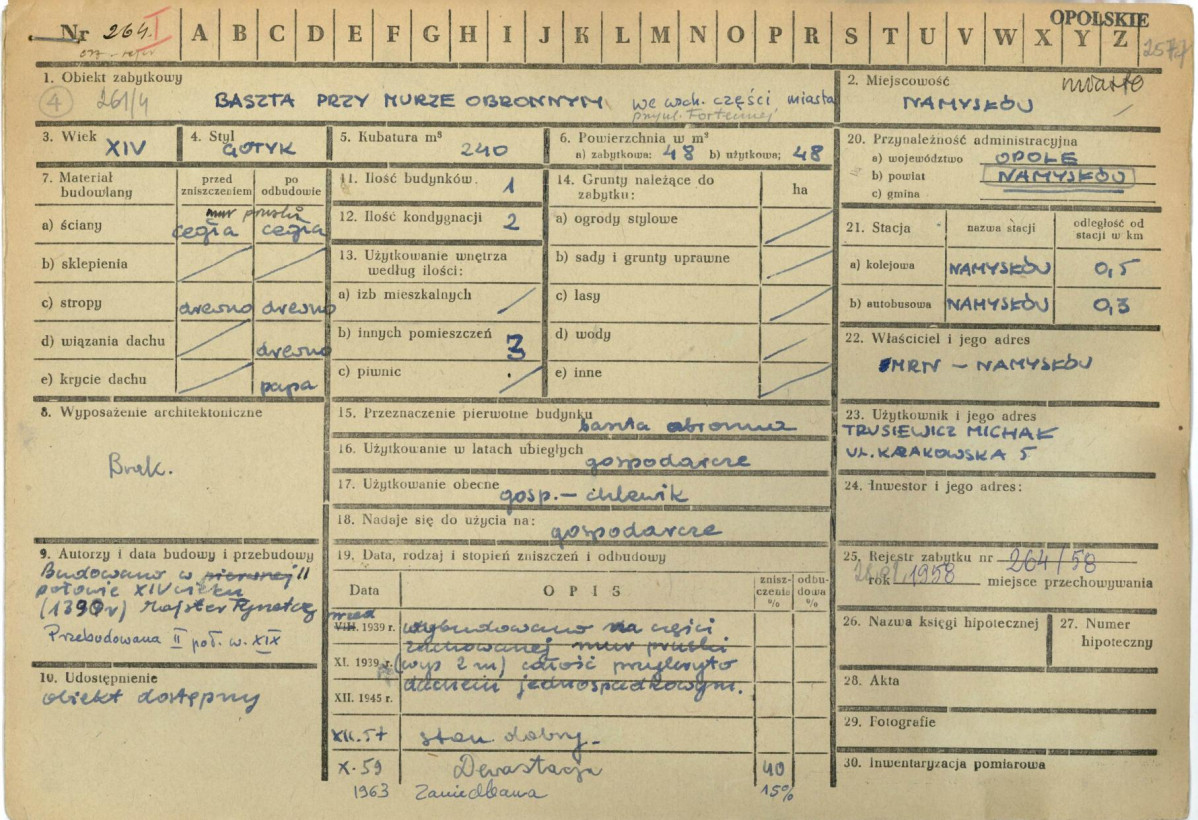 OPOLSKIE
Nr 264. I A B C D E F G H I J K L M N O P R S T U V W X Y Z
1. Obiekt zabytkowy
4 261/4
BASZTA PRZY MURZE OBRONNYM we wsch. części miasta
przy ul. Fortecznej
2. Miejscowość miasto
NAMYSŁÓW
3. Wiek XIV
4. Styl GOTYK
5. Kubatura m³ 240
6. Powierzchnia w m²
a) zabytkowa: 48 b) użytkowa: 48
7. Materiał budowlany
przed zniszczeniem
po odbudowie
mur pruski
a) ściany cegła cegła
b) sklepienia / /
c) stropy drewno drewno
d) wiązania dachu / drewno
e) krycie dachu / papa
8. Wyposażenie architektoniczne
Brak.
9. Autorzy i data budowy i przebudowy
Budowano w pierwszej II
połowie XIV wieku
(1390r) Majster
Przebudowana II poł. w. XIX
10. Udostępnienie
obiekt dostępny
11. Ilość budynków 1
12. Ilość kondygnacji 2
13. Użytkowanie wnętrza
według ilości:
a) izb mieszkalnych /
b) innych pomieszczeń 3
c) piwnic /
14. Grunty należące do
zabytku: ha
a) ogrody stylowe /
b) sady i grunty uprawne /
c) lasy /
d) wody /
e) inne /
15. Przeznaczenie pierwotne budynku
baszta obronna
16. Użytkowanie w latach ubiegłych
gospodarcze
17. Użytkowanie obecne
gosp. – chlewik
18. Nadaje się do użycia na:
gospodarcze
19. Data, rodzaj i stopień zniszczeń i odbudowy
Data
OPIS
znisz-
czenia
%
odbu-
dowa
%
przed
VIII. 1939 r. wybudowano na części
zachowanej mur pruski
XI. 1939 r. (wys 2 m) całość przykryto
dachem jednospadkowym.
XII. 1945 r.
XII. 57 stan dobry –
X. 59 Dewastacja 40
1963 Zaniedbana 15%
20. Przynależność administracyjna
a) województwo OPOLE
b) powiat NAMYSŁÓW
c) gmina
21. Stacja
nazwa stacji
odległość od
stacji w km
a) kolejowa NAMYSŁÓW 0,5
b) autobusowa NAMYSŁÓW 0,3
22. Właściciel i jego adres
MRN – NAMYSŁÓW
23. Użytkownik i jego adres
TRUSIEWICZ MICHAŁ
UL. KRAKOWSKA 5
24. Inwestor i jego adres:
25. Rejestr zabytku nr 264/58
rok 1958 miejsce przechowywania
26. Nazwa księgi hipotecznej
27. Numer
hipoteczny
28. Akta
29. Fotografie
30. Inwentaryzacja pomiarowa